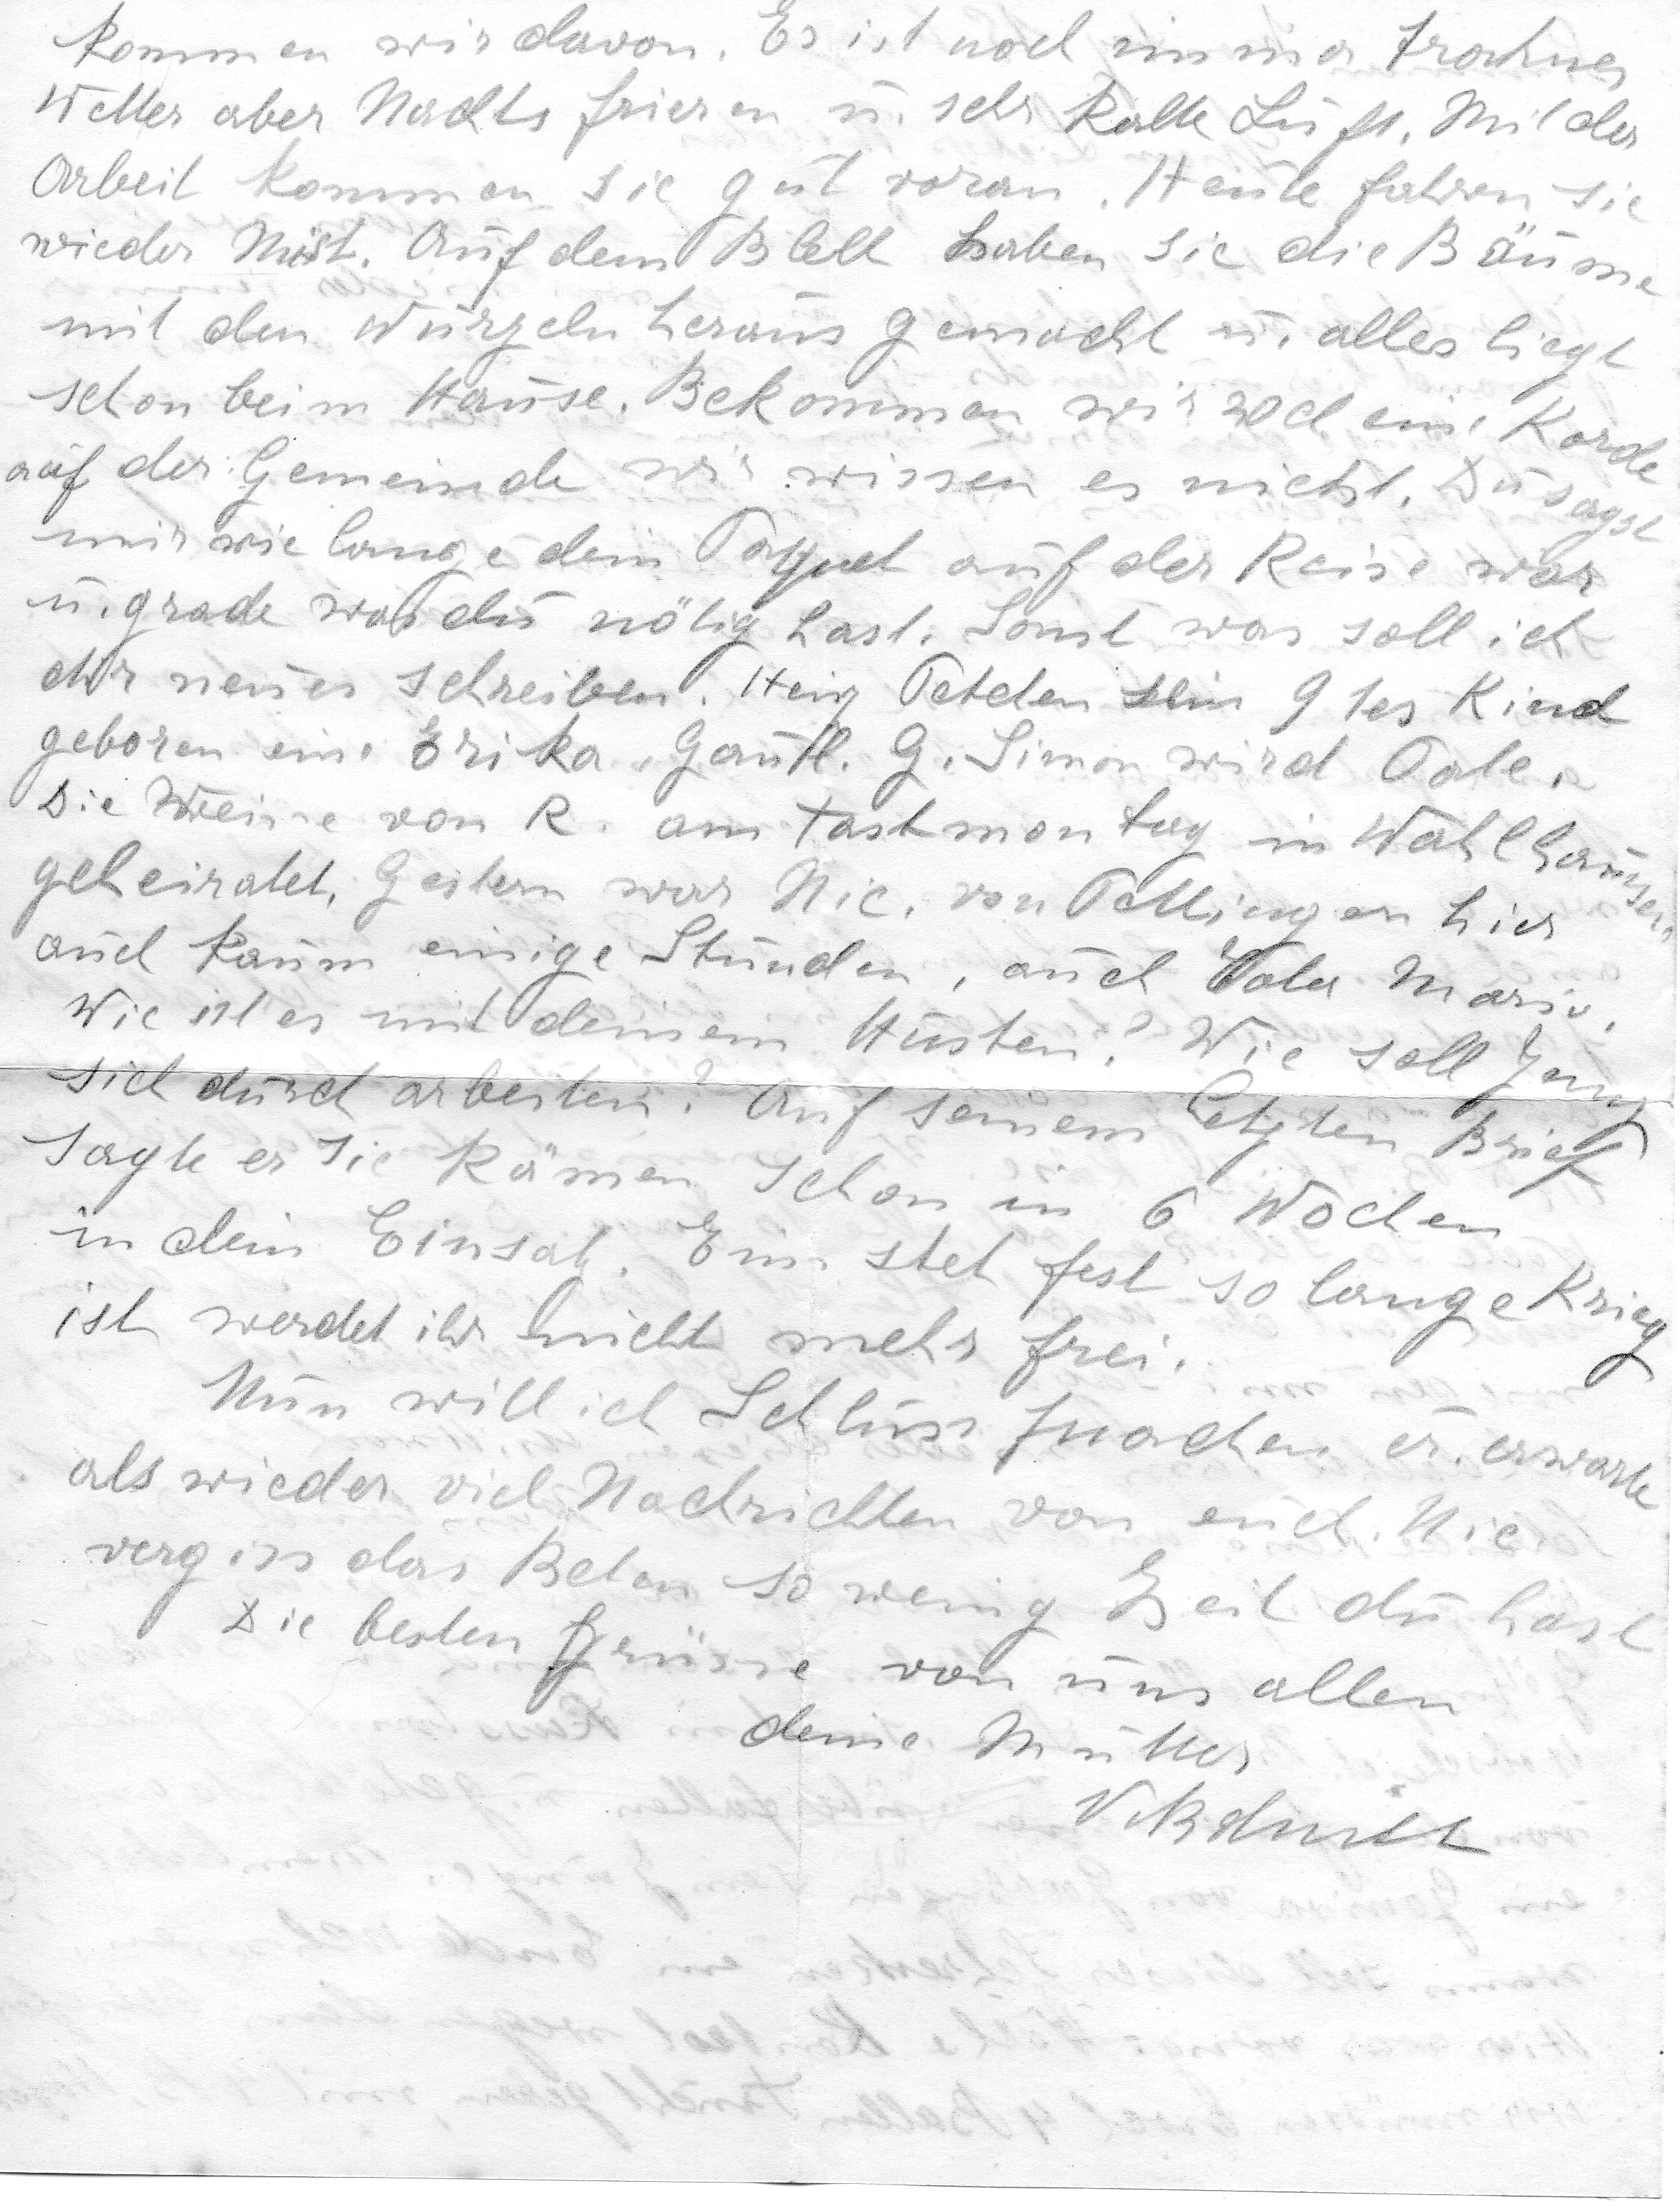 kommen wir davon. Es ist noch immer troknes
Wetter aber Nachts frieren u. sehr kalte Luft. Mit der
Arbeit kommen sie gut voran. Heute fahren sie
wieder Mist. Auf dem Blett haben sie die Bäume
mit den Wurzeln heraus gemacht u. alles liegt
schon beim Hause. Bekommen wir noch eine Korde
auf der Gemeinde wir wissen es nicht. Du sagst
mir wie lange dein Paquet auf der Reise war
u. grade was du nötig hast. Sonst was soll ich
dir neues schreiben. Heng Petchen sein 9tes Kind
geboren eine Erika. G. Simon wird Pate.
Die Weine von R. am Fastmontag in Wahlhausen
geheiratet. Gestern war Nic. von Pettingen hier
auch kaum einige Stunden, auch Mari.
Wie ist es mit deinem Husten? Wie soll Jemp
sich durch arbeiten? Auf seinem letzten Brief
sagte er sie kämen schon in 6 Wochen
in dein Einsatz. Ein steht fest so lange Krieg
ist werdet ihr nicht mehr frei.
Nun will ich Schluss machen u. erwarte
als wieder viel Nachrichten von euch. Nie
vergiss das Beten so wenig Zeit du hast
Die besten Grüsse von uns allen
deine Mutter